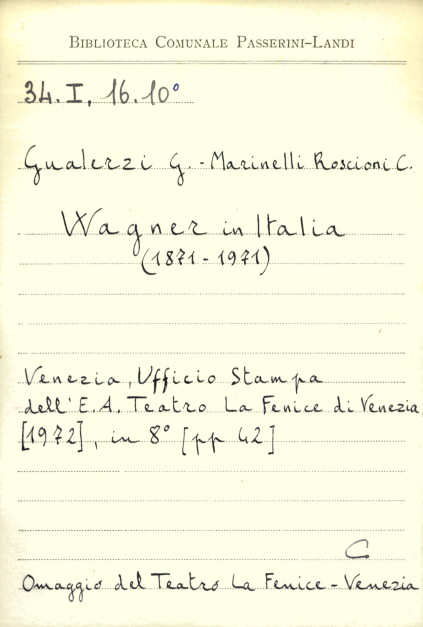 BIBLIOTECA COMUNALE PASSERINI-LANDI
34.I, 16.10°
Gualerzi G. - Marinelli Roscioni C.
Wagner in Italia
(1871 - 1971)
Venezia, Ufficio Stampa
dell'E.A. Teatro La Fenice di Venezia
[1972], in 8° [pp 42]
C
Omaggio del Teatro La Fenice - Venezia